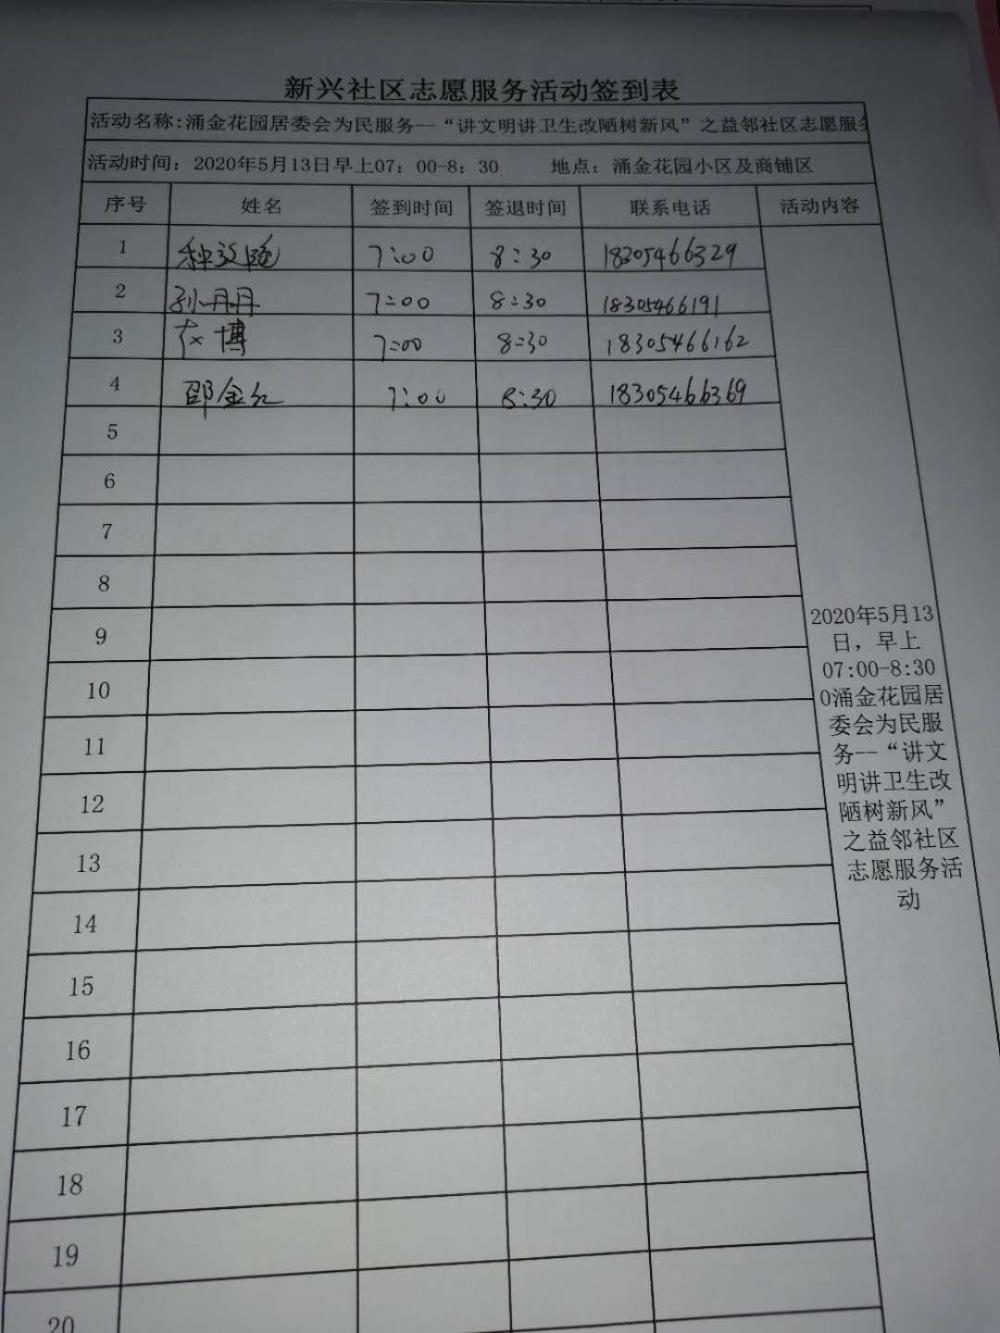 新兴社区志愿服务活动签到表
活动名称:涌金花园居委会为民服务--“讲文明讲卫生改陋树新风”之益邻社区志愿服务
活动时间：2020年5月13日早上07：00-8：30 地点：涌金花园小区及商铺区
序号 姓名 签到时间 签退时间 联系电话 活动内容
1 7:00 8:30 18305466329
2 孙丹丹 7:00 8:30 18305466191
3 博 7:00 8:30 18305466162
4 邵金红 7:00 8:30 18305466369
5
6
7
8
9
10
11
12
13
14
15
16
17
18
19
20
2020年5月13
日，早上
07:00-8:30
0涌金花园居
委会为民服
务--“讲文
明讲卫生改
陋树新风”
之益邻社区
志愿服务活
动